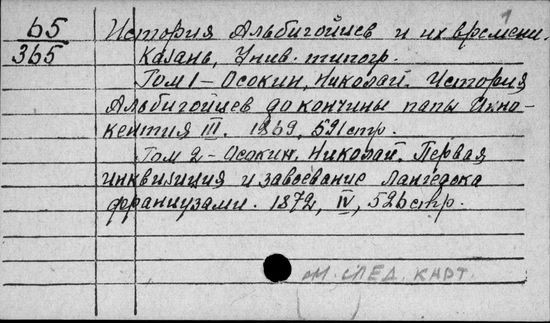 65
365
1
История Альбигойцев и их времени.
Казань, Унив. типогр.
Том 1 – Осокин, Николай. История
Альбигойцев до кончины папы Инно-
кентия III. 1869, 591 стр.
Том 2 – Осокин, Николай. Первая
инквизиция и завоевание Лангедока
французами. 1872, IV, 526 стр.
СЛЕД. КАРТ.